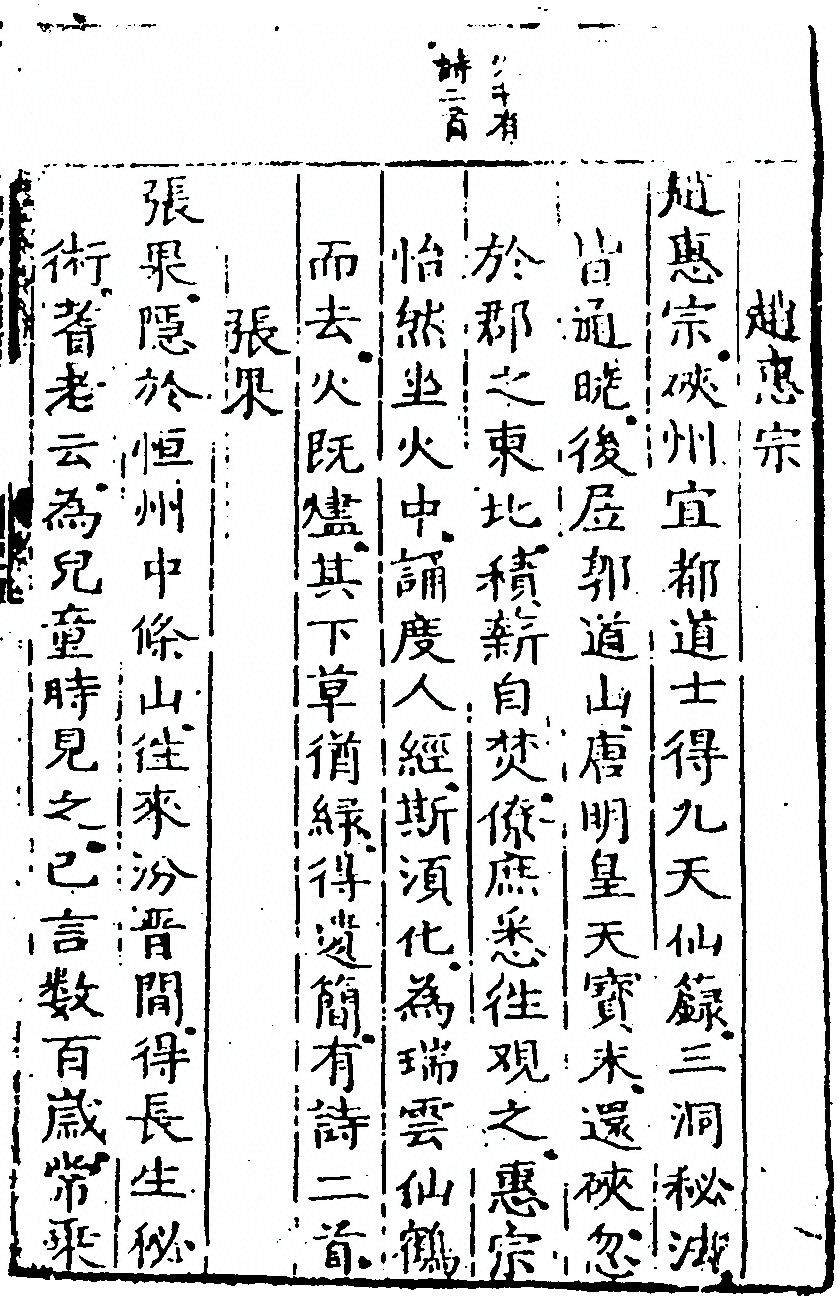 有
詩二首
趙惠宗
趙惠宗硤州宜都道士得九天仙籙三洞秘法
皆通曉後居郭道山唐明皇天寶末還硤忽
於郡之東北積薪自焚僚庶悉徃观之惠宗
怡然坐火中誦度人經斯湏化為瑞雲仙鶴
而去火既燼其下草猶緑得遺簡有詩二首
張果
張果隱於恒州中條山徃來汾晉間得長生秘
術耆老云為兒童時見之已言数百歲常乘